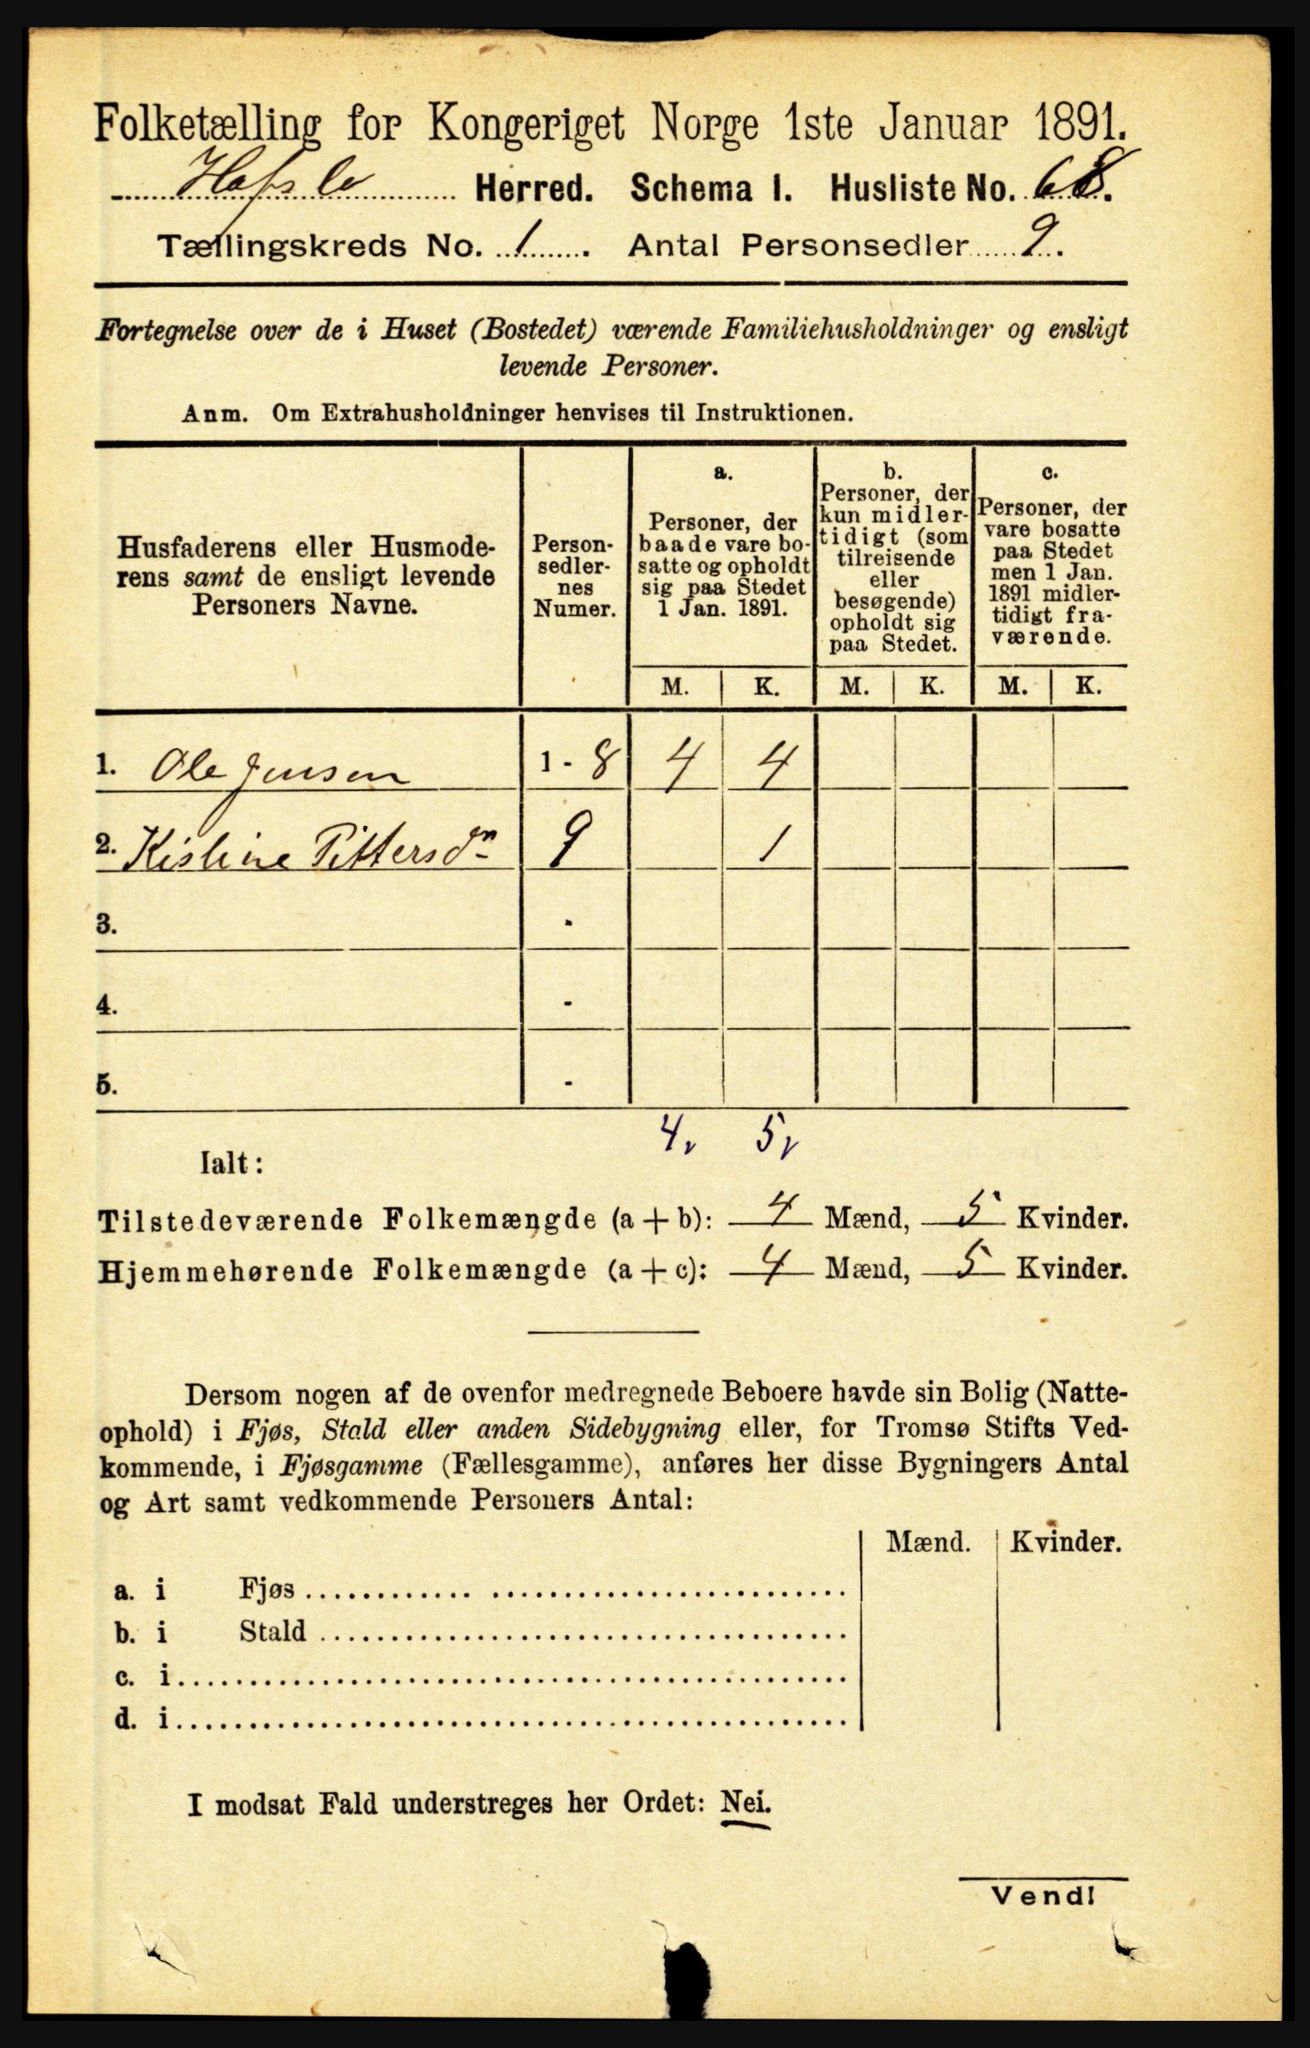 Folketælling for Kongeriget Norge 1ste Januar 1891.
Hafslo Herred. Schema I. Husliste No. 68.
Tællingskreds No. 1. Antal Personsedler 9.
Fortegnelse over de i Huset (Bostedet) værende Familiehusholdninger og ensligt
levende Personer.
Anm. Om Extrahusholdninger henvises til Instruktionen.
Husfaderens eller Husmode-
rens samt de ensligt levende
Personers Navne.
Person-
sedler-
nes
Numer.
a.
Personer, der
baade vare bo-
satte og opholdt
sig paa Stedet
1 Jan. 1891.
b.
Personer, der
kun midler-
tidigt (som
tilreisende
eller
besøgende)
opholdt sig
paa Stedet.
c.
Personer, der
vare bosatte
paa Stedet
men 1 Jan.
1891 midler-
tidigt fra-
værende.
M. K. M. K. M. K.
1. Ole Jensen 1 - 8 4 4
2. Kistine Pittersdn 9 1
3. -
4. -
5. -
4 5
Ialt:
Tilstedeværende Folkemængde (a + b): 4 Mænd, 5 Kvinder.
Hjemmehørende Folkemængde (a + c): 4 Mænd, 5 Kvinder.
Dersom nogen af de ovenfor medregnede Beboere havde sin Bolig (Natte-
ophold) i Fjøs, Stald eller anden Sidebygning eller, for Tromsø Stifts Ved-
kommende, i Fjøsgamme (Fællesgamme), anføres her disse Bygningers Antal
og Art samt vedkommende Personers Antal:
Mænd. Kvinder.
a. i Fjøs
b. i Stald
c. i
d. i
I modsat Fald understreges her Ordet: Nei.
Vend!